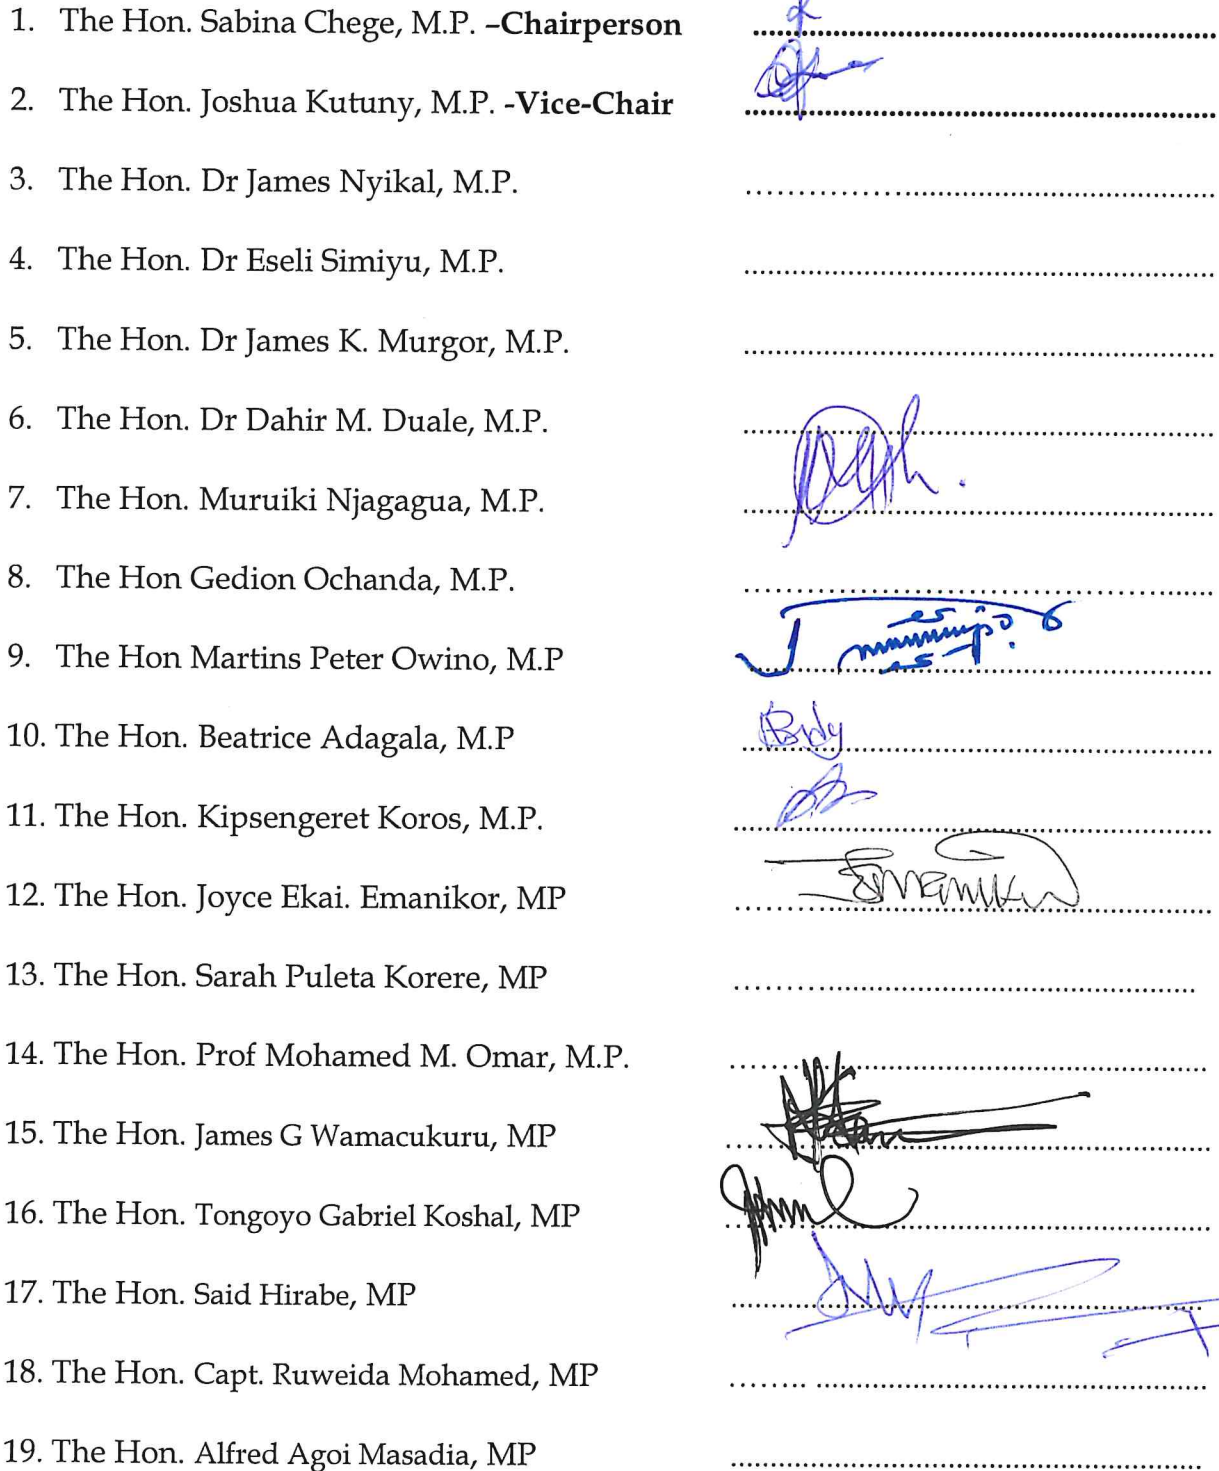 1. The Hon. Sabina Chege, M.P. –Chairperson ........................................
2. The Hon. Joshua Kutuny, M.P. -Vice-Chair ........................................
3. The Hon. Dr James Nyikal, M.P. ........................................
4. The Hon. Dr Eseli Simiyu, M.P. ........................................
5. The Hon. Dr James K. Murgor, M.P. ........................................
6. The Hon. Dr Dahir M. Duale, M.P. ........................................
7. The Hon. Muruiki Njagagua, M.P. ........................................
8. The Hon Gedion Ochanda, M.P. ........................................
9. The Hon Martins Peter Owino, M.P ........................................
10. The Hon. Beatrice Adagala, M.P ........................................
11. The Hon. Kipsengeret Koros, M.P. ........................................
12. The Hon. Joyce Ekai. Emanikor, MP ........................................
13. The Hon. Sarah Puleta Korere, MP ........................................
14. The Hon. Prof Mohamed M. Omar, M.P. ........................................
15. The Hon. James G Wamacukuru, MP ........................................
16. The Hon. Tongoyo Gabriel Koshal, MP ........................................
17. The Hon. Said Hirabe, MP ........................................
18. The Hon. Capt. Ruweida Mohamed, MP ........................................
19. The Hon. Alfred Agoi Masadia, MP ........................................